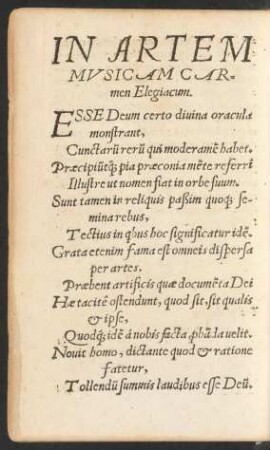 IN ARTEM
MVSICAM CAR-
men Elegiacum.
ESSE Deum certo diuina oracula
monstrant,
Cunctarũ rerũ qui moderamẽ habet.
Præcipiũtq́; pia præconia mẽte referri
Illustre ut nomen fiat in orbe suum.
Sunt tamen in reliquis paßim quoq; se-
mina rebus,
Tectius in q̃bus hoc significatur idẽ.
Grata etenim fama est omneis dispersa
per artes,
Præbent artificis quæ documẽta Dei
Hæ tacitè ostendunt, quod sit, sit qualis
& ipse,
Quodq́; idẽ à nobis facta,
Nouit homo, dictante quod & ratione
fatetur,
Tollendũ summis laudibus esse Deũ.